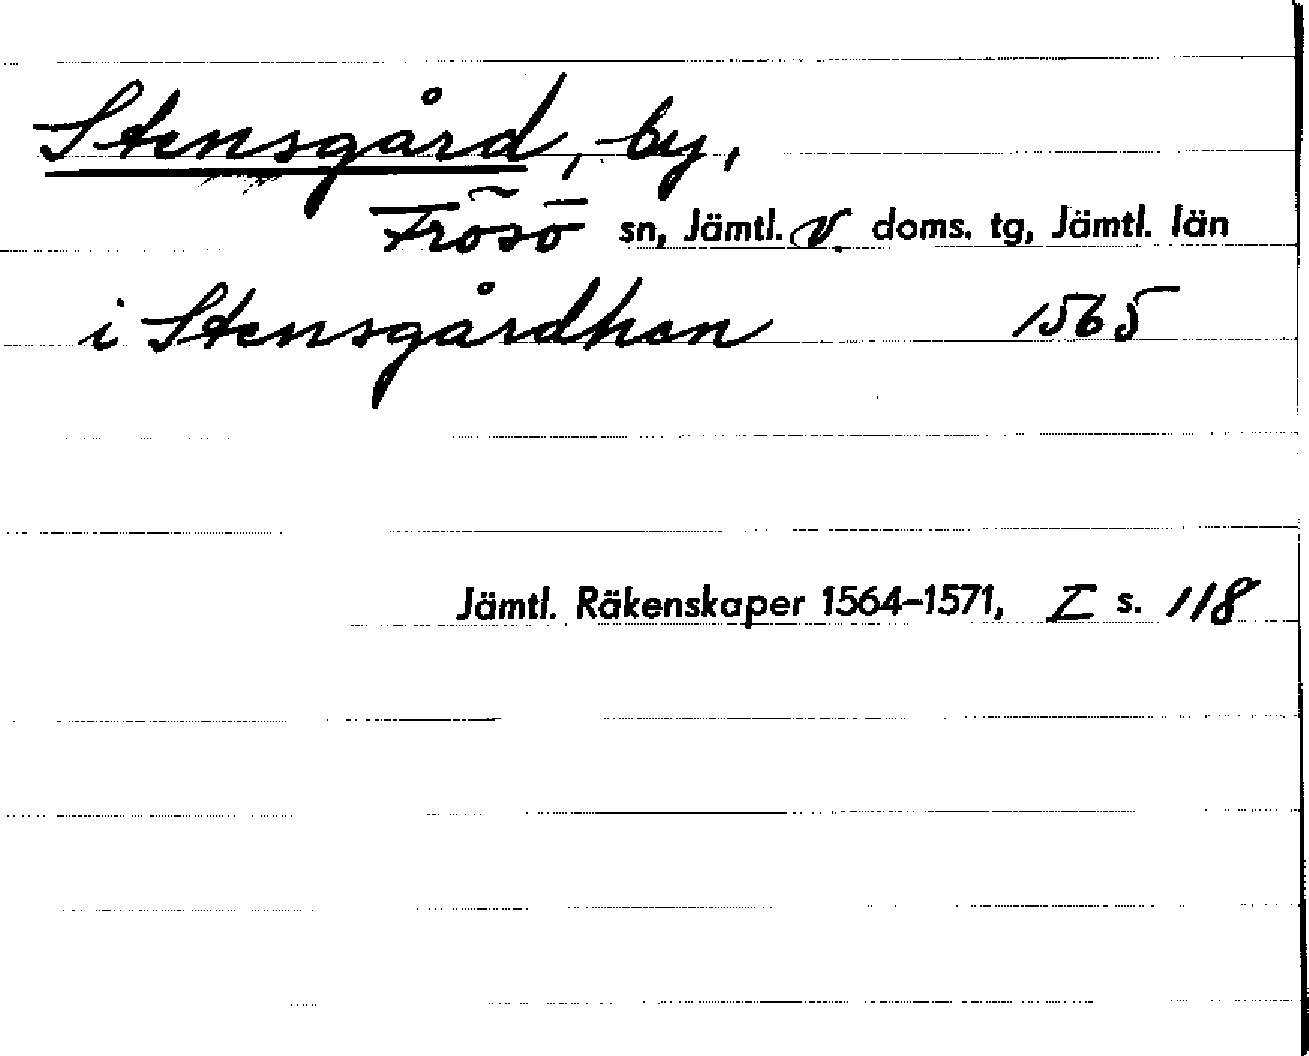 Stensgård, by,
Frösö sn, Jämtl. V. doms. tg, Jämtl. län
i Stensgårdhen 1565
Jämtl. Räkenskaper 1564-1571, I s. 118